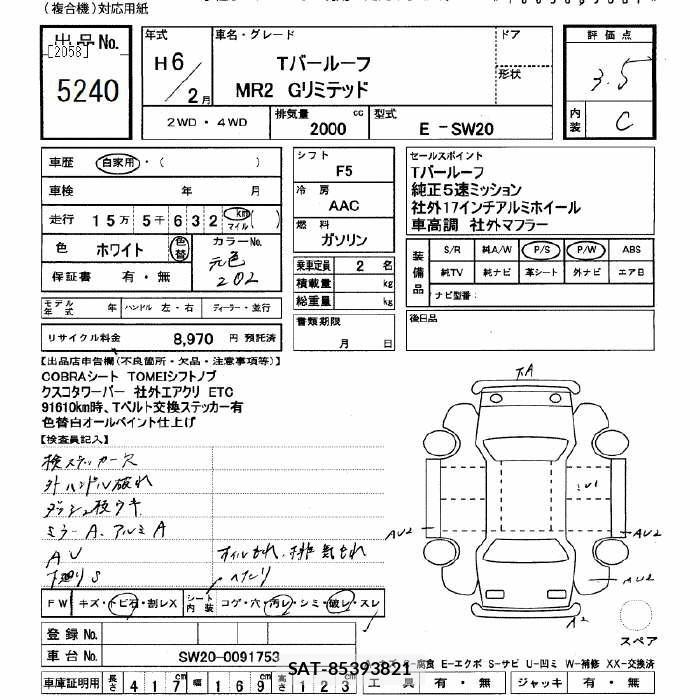 (複合機)対応用紙
出品No.
[2058]
5240
年式
H6/2月
車名・グレード
Tバールーフ
MR2 Gリミテッド
ドア
形状
評価点
3.5
内装
C
2WD・4WD
排気量
2000 cc
型式
E -SW20
車歴 自家用・( )
車検 年 月
走行 15万5千632 km マイル ( )
色 ホワイト 色替
カラーNo.
元色
202
保証書 有・無
モデル年式 年 ハンドル 左・右 ディーラー・並行
リサイクル料金 8,970 円 預託済
シフト
F5
冷房
AAC
燃料
ガソリン
乗車定員 2 名
積載量 kg
総重量 kg
書類期限
月 日
セールスポイント
Tバールーフ
純正5速ミッション
社外17インチアルミホイール
車高調 社外マフラー
装備品
S/R 純A/W P/S P/W ABS
純TV 純ナビ 革シート 外ナビ エアB
ナビ型番:
後日品
【出品店申告欄(不良箇所・欠品・注意事項等)】
COBRAシート TOMEIシフトノブ
クスコタワーバー 社外エアクリ ETC
91610km時、Tベルト交換ステッカー有
色替白オールペイント仕上げ
【検査員記入】
検ステッカー欠
外ハンドル破れ
ダッシュ板ウキ
ミラーA、アルミA
AU
下廻りS
オイルもれ、排気もれ
へたり
FW キズ・トビ石・割レX
シート内装 コゲ・穴・汚レ・シミ・破レ・スレ
登録No.
車台No. SW20-0091753
車庫証明用 長さ 417cm 幅 169cm 高さ 123cm
工具 有・無 ジャッキ 有・無
A
U1
AU2
AU2
AU2
A2
スペア
腐食 E-エクボ S-サビ U-凹ミ W-補修 XX-交換済
SAT-85393821